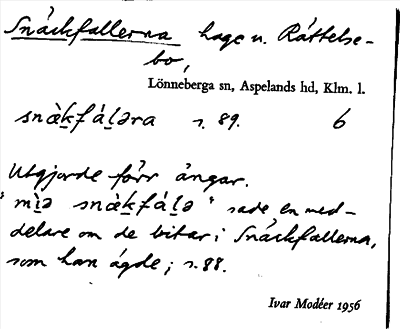 Snäckfallerna hage u. Råttelse-
bo,
Lönneberga sn, Aspelands hd, Klm. l.
snæ̀k̠fáḷəra s. 89. 6
Utgjorde förr ängar.
"mi̠ə snæ̀k̠fáḷə" sade en med-
delare om de bitar i Snäckfallerna,
som han ägde; s. 88.
Ivar Modéer 1956